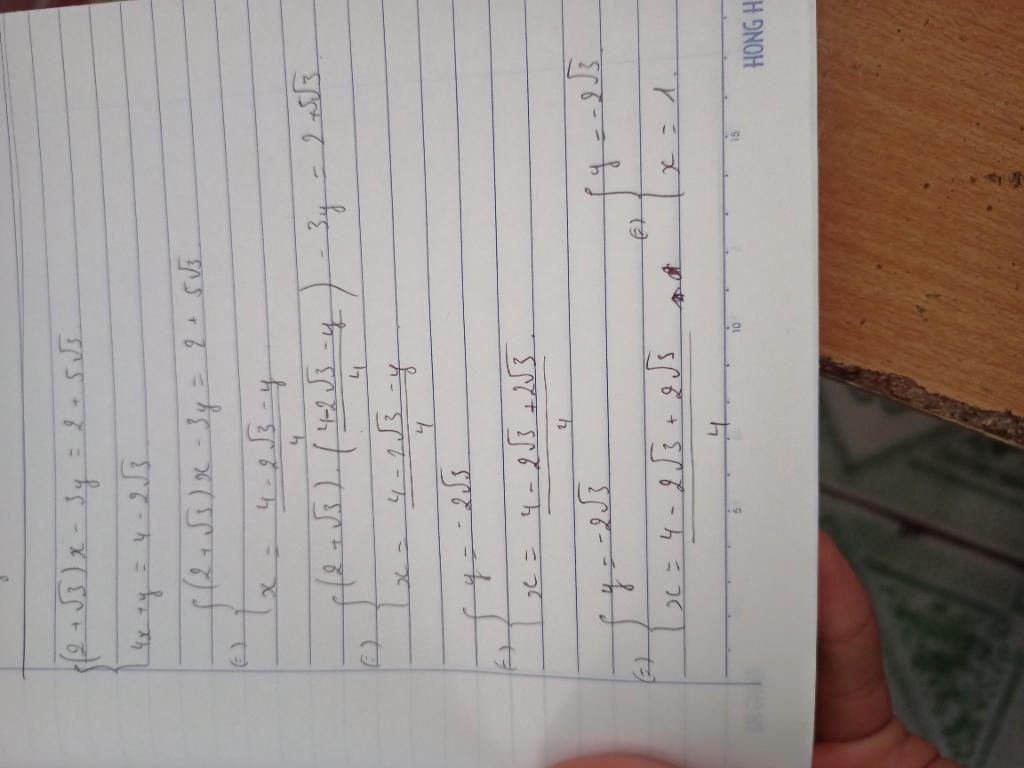 {(2+√3)x - 3y = 2 + 5√3
{4x + y = 4 - 2√3
(=) {(2+√3)x - 3y = 2 + 5√3
{x = (4 - 2√3 - y)/4
(=) {(2+√3).((4-2√3-y)/4) - 3y = 2 + 5√3
{x = (4 - 2√3 - y)/4
(=) {y = -2√3
{x = (4 - 2√3 + 2√3)/4
(=) {y = -2√3 (=) {y = -2√3
{x = (4 - 2√3 + 2√3)/4 {x = 1.
5 10 15
HONG H